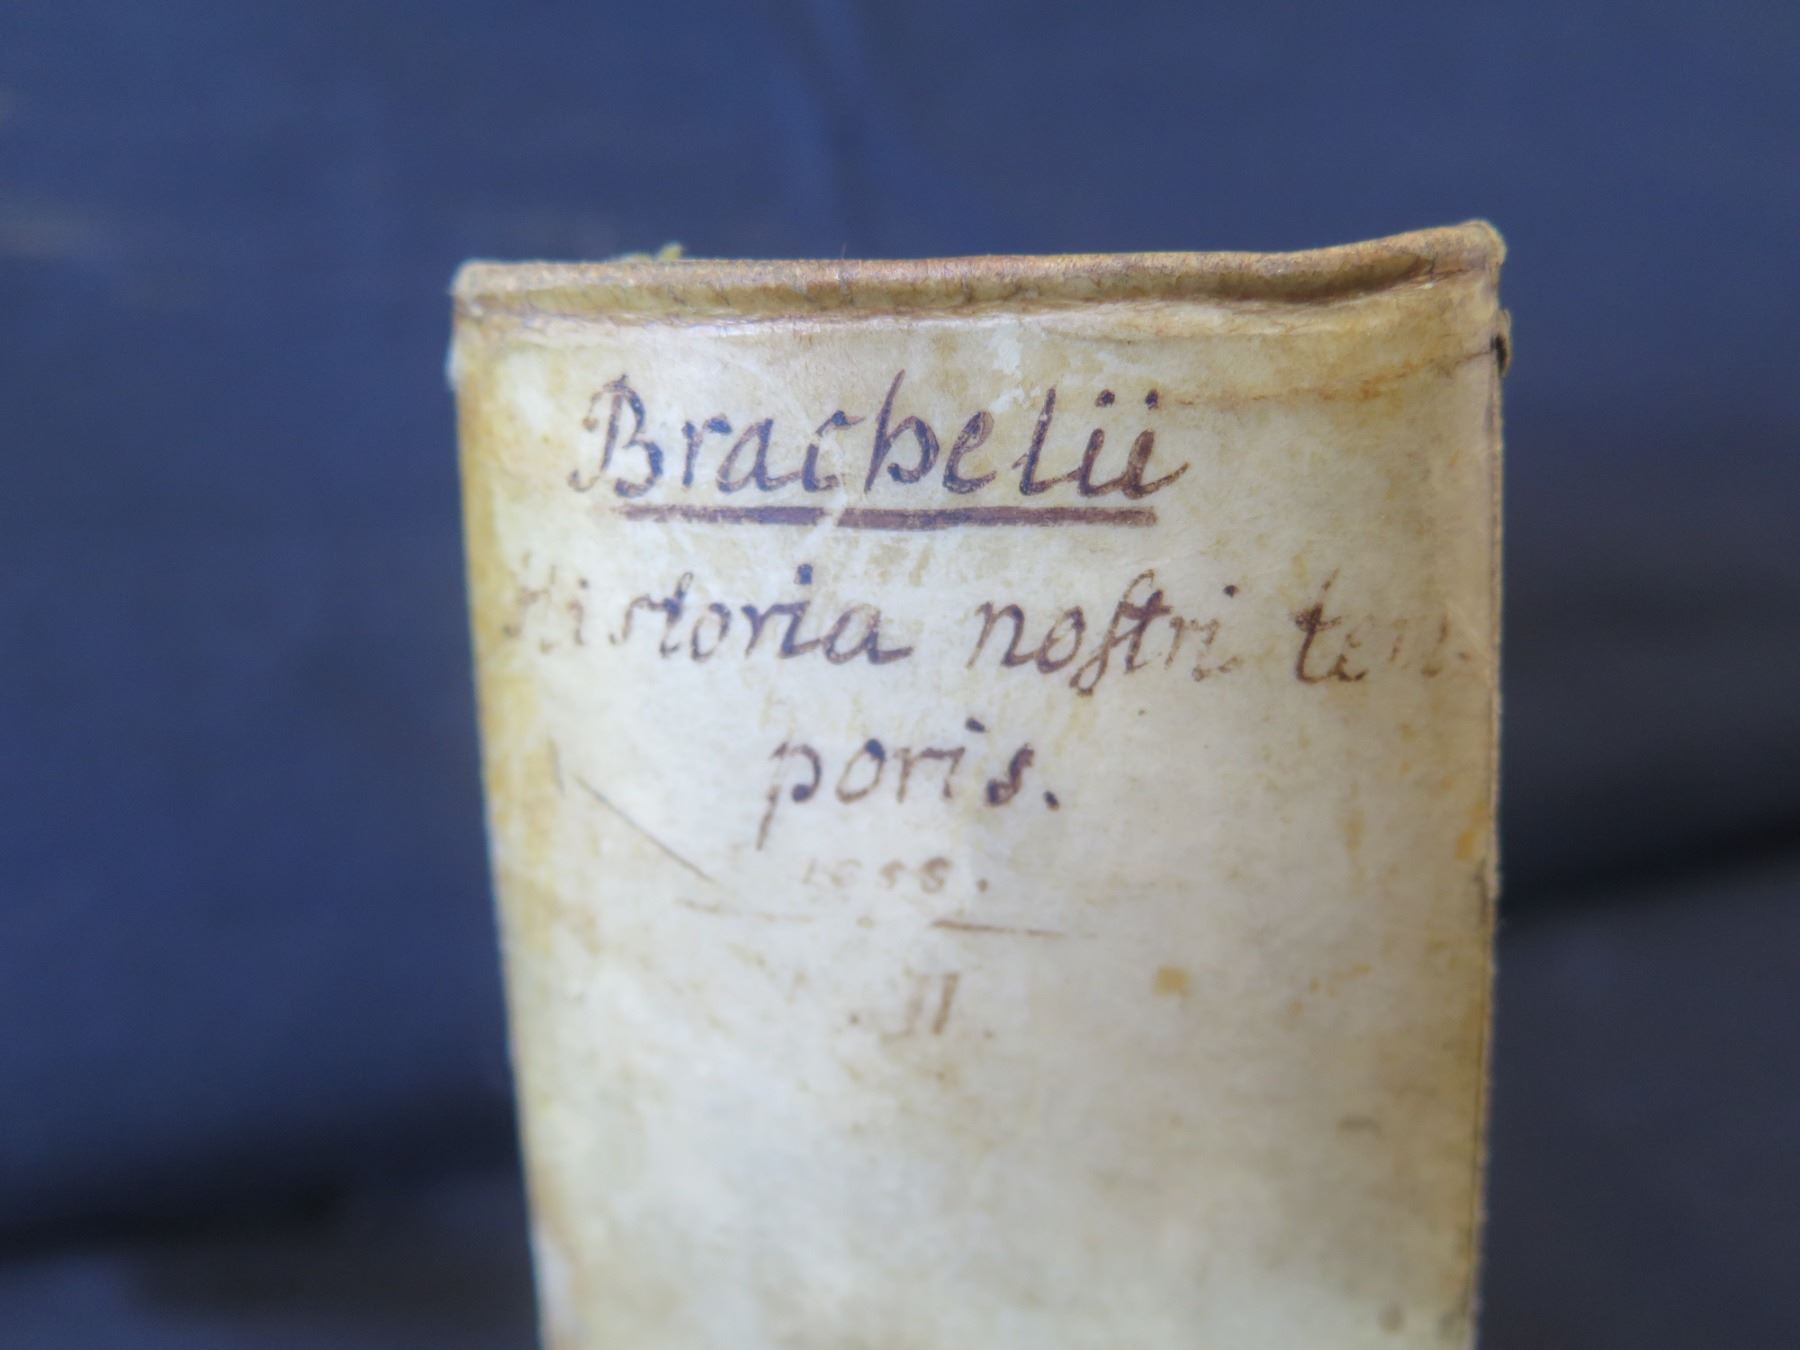 Brachelii
Historia noſtri tem-
poris.
.II.